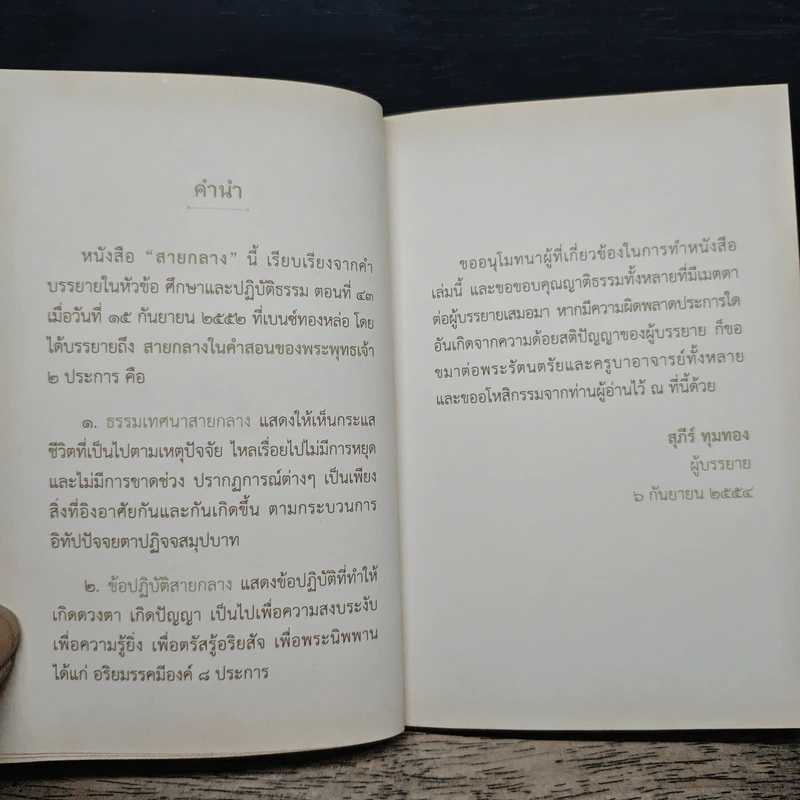 คำนำ
หนังสือ “สายกลาง” นี้ เรียบเรียงจากคำ
บรรยายในหัวข้อ ศึกษาและปฏิบัติธรรม ตอนที่ ๔๓
เมื่อวันที่ ๑๕ กันยายน ๒๕๕๒ ที่เบนซ์ทองหล่อ โดย
ได้บรรยายถึง สายกลางในคำสอนของพระพุทธเจ้า
๒ ประการ คือ
๑. ธรรมเทศนาสายกลาง แสดงให้เห็นกระแส
ชีวิตที่เป็นไปตามเหตุปัจจัย ไหลเรื่อยไปไม่มีการหยุด
และไม่มีการขาดช่วง ปรากฏการณ์ต่างๆ เป็นเพียง
สิ่งที่อิงอาศัยกันและกันเกิดขึ้น ตามกระบวนการ
อิทัปปัจจยตาปฏิจจสมุปบาท
๒. ข้อปฏิบัติสายกลาง แสดงข้อปฏิบัติที่ทำให้
เกิดดวงตา เกิดปัญญา เป็นไปเพื่อความสงบระงับ
เพื่อความรู้ยิ่ง เพื่อตรัสรู้อริยสัจ เพื่อพระนิพพาน
ได้แก่ อริยมรรคมีองค์ ๘ ประการ
ขออนุโมทนาผู้ที่เกี่ยวข้องในการทำหนังสือ
เล่มนี้ และขอขอบคุณญาติธรรมทั้งหลายที่มีเมตตา
ต่อผู้บรรยายเสมอมา หากมีความผิดพลาดประการใด
อันเกิดจากความด้อยสติปัญญาของผู้บรรยาย ก็ขอ
ขมาต่อพระรัตนตรัยและครูบาอาจารย์ทั้งหลาย
และขออโหสิกรรมจากท่านผู้อ่านไว้ ณ ที่นี้ด้วย
สุภีร์ ทุมทอง
ผู้บรรยาย
๖ กันยายน ๒๕๕๔